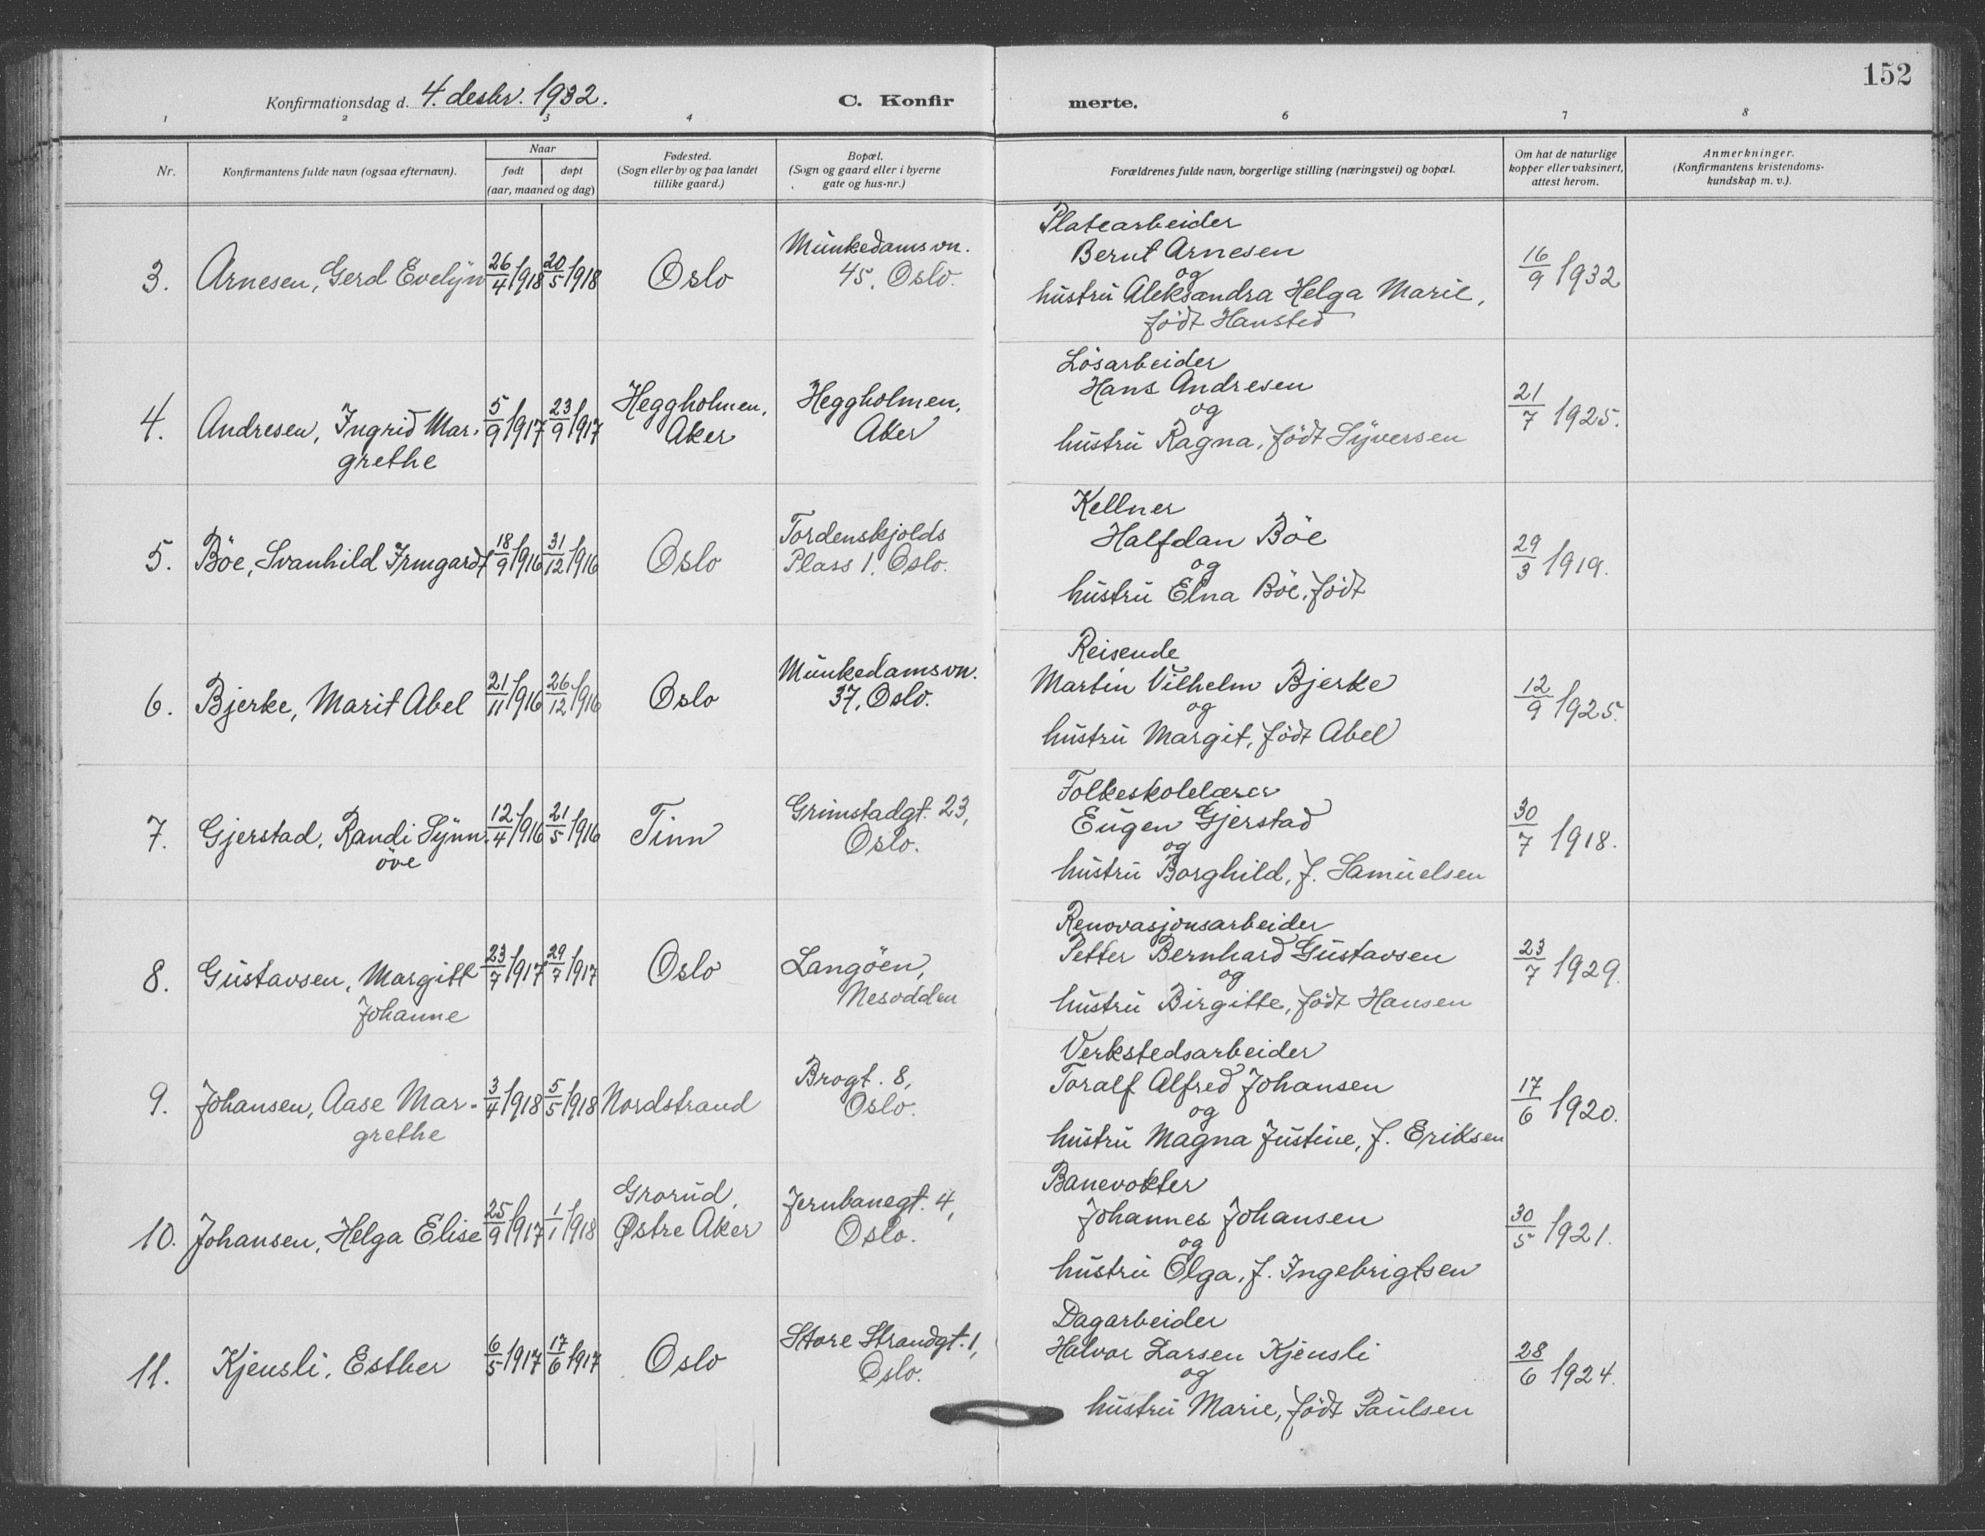 152
Konfirmationsdag d. 4. desbr. 1932.
C. Konfirmerte.
1 2 3 4 6 7 8
Nr.
Konfirmantens fulde navn (ogsaa efternavn).
Naar
født døpt
(aar, maaned og dag)
Fødested.
(Sogn eller by og paa landet
tillike gaard.)
Bopæl.
(Sogn og gaard eller i byerne
gate og hus-nr.)
Forældrenes fulde navn, borgerlige stilling (næringsvei) og bopæl.
Om hat de naturlige
kopper eller vaksinert,
attest herom.
Anmerkninger.
(Konfirmantens kristendoms-
kundskap m. v.).
3. Arnesen, Gerd Evelyn 26/4 1918 20/5 1918 Oslo
Munkedamsvn.
45, Oslo.
Platearbeider
Bernt Arnesen
og
hustru Aleksandra Helga Marie,
født Hansted
16/9 1932
4. Andresen, Ingrid Mar-
grethe
5/9 1917 23/9 1917
Heggholmen,
Aker
Heggholmen,
Aker
Løsarbeider
Hans Andresen
og
hustru Ragna, født Syversen
21/7 1925.
5. Böe, Svanhild Irmgardt 18/9 1916 31/12 1916 Oslo
Tordenskjolds
Plass 1, Oslo.
Kellner
Halfdan Böe
og
hustru Elna Böe, født
29/3 1919.
6. Bjerke, Marit Abel 21/11 1916 26/12 1916 Oslo
Munkedamsvn.
37, Oslo.
Reisende
Martin Vilhelm Bjerke
og
hustru Margit, født Abel
12/9 1925.
7. Gjerstad, Randi Synn-
öve
12/4 1916 21/5 1916 Tinn
Grimstadgt. 23,
Oslo.
Folkeskolelærer
Eugen Gjerstad
og
hustru Borghild, f. Samuelsen
30/7 1918.
8. Gustavsen, Margitt
Johanne
23/7 1917 29/7 1917 Oslo
Langöen,
Nesodden
Renovasjonsarbeider
Petter Bernhard Gustavsen
og
hustru Birgitte, født Hansen
23/7 1929.
9. Johansen, Aase Mar-
grethe
3/4 1918 5/5 1918 Nordstrand
Brogt. 8,
Oslo.
Verkstedsarbeider
Toralf Alfred Johansen
og
hustru Magna Justine, f. Eriksen
17/6 1920.
10. Johansen, Helga Elise 25/9 1917 1/1 1918
Grorud,
Østre Aker
Jernbanegt. 4,
Oslo.
Banevokter
Johannes Johansen
og
hustru Olga, f. Ingebrigtsen
30/5 1921.
11. Kjensli, Esther 6/5 1917 17/6 1917 Oslo
Store Strandgt. 1,
Oslo.
Dagarbeider
Halvor Larsen Kjensli
og
hustru Marie, født Paulsen
28/6 1924.